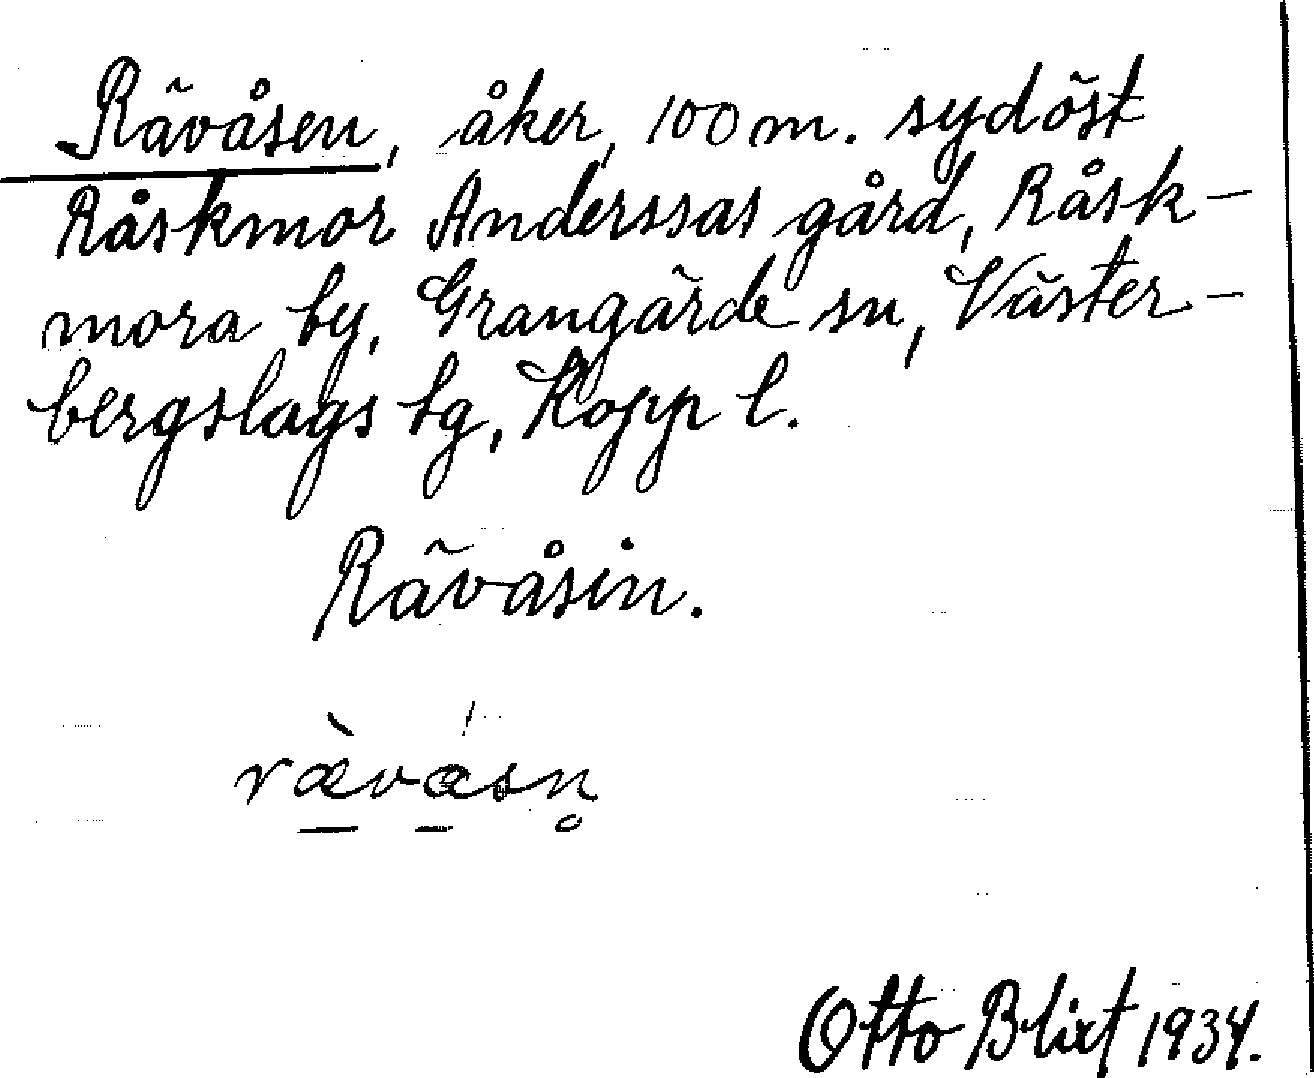 Rävåsen, åker, 100 m. sydöst
Råskmor Anderssas gård, Råsk-
mora by, Grangärde sn, Väster-
bergslags tg, Kopp l.
Rävåsin.
ræ̀vásn̥
Otto Blixt 1934.